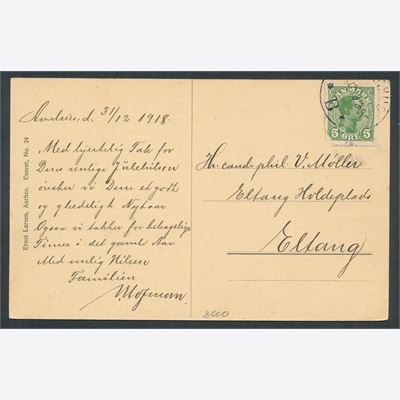 Aarhus, d. 31/12 1918.
Med hjertelig Tak for
Deres venlige Julehilsen
ønsker vi Dem et godt
og glædeligt Nytaar
Ogsaa vi takker for behagelige
Timer i det gamle Aar.
Med venlig Hilsen
Familien
Hofman.
Ernst Larsen, Aarhus. Eneret. No. 24
DANMARK
5 5
ØRE
Hr. cand. phil. V. Møller
Eltang Holdeplads
Eltang